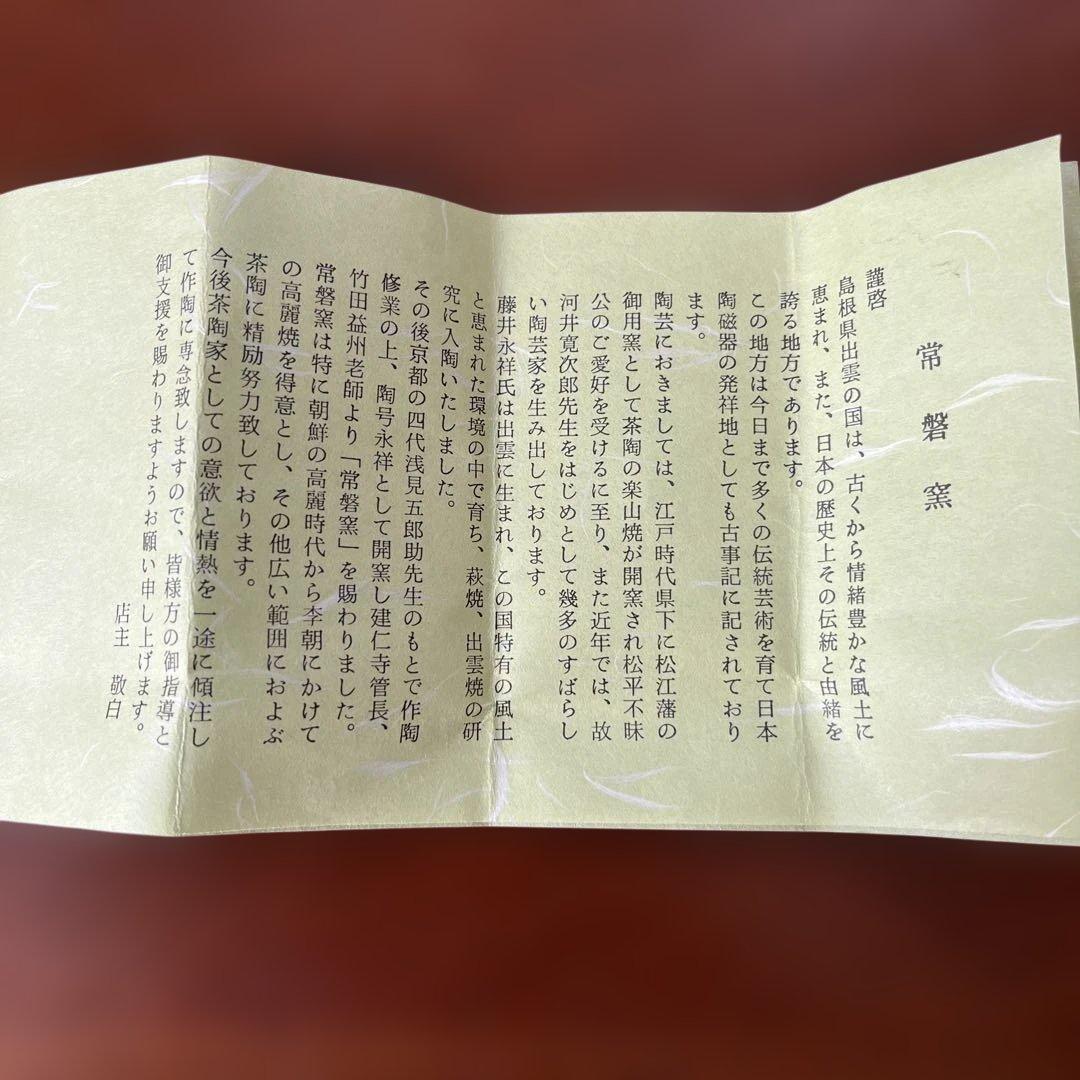 常磐窯
謹啓
島根県出雲の国は、古くから情緒豊かな風土に
恵まれ、また、日本の歴史上その伝統と由緒を
誇る地方であります。
この地方は今日まで多くの伝統芸術を育て日本
陶磁器の発祥地としても古事記に記されており
ます。
陶芸におきましては、江戸時代県下に松江藩の
御用窯として茶陶の楽山焼が開窯され松平不昧
公のご愛好を受けるに至り、また近年では、故
河井寛次郎先生をはじめとして幾多のすばらし
い陶芸家を生み出しております。
藤井永祥氏は出雲に生まれ、この国特有の風土
と恵まれた環境の中で育ち、萩焼、出雲焼の研
究に入陶いたしました。
その後京都の四代浅見五郎助先生のもとで作陶
修業の上、陶号永祥として開窯し建仁寺管長、
竹田益州老師より「常磐窯」を賜わりました。
常磐窯は特に朝鮮の高麗時代から李朝にかけて
の高麗焼を得意とし、その他広い範囲におよぶ
茶陶に精励努力致しております。
今後茶陶家としての意欲と情熱を一途に傾注し
て作陶に専念致しますので、皆様方の御指導と
御支援を賜わりますようお願い申し上げます。
店主 敬白